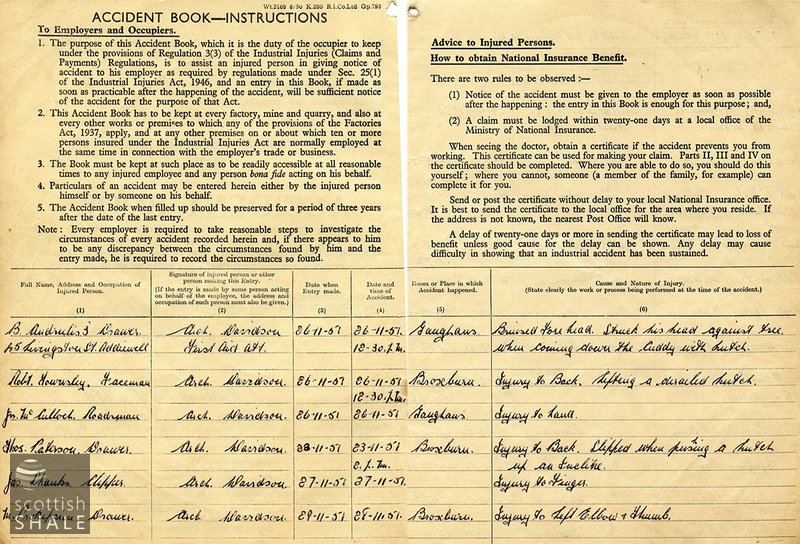 Wt.3168 8/50 K.280 R.I.Co.Ltd Gp.793
ACCIDENT BOOK—INSTRUCTIONS
To Employers and Occupiers.
1. The purpose of this Accident Book, which it is the duty of the occupier to keep
under the provisions of Regulation 3(3) of the Industrial Injuries (Claims and
Payments) Regulations, is to assist an injured person in giving notice of
accident to his employer as required by regulations made under Sec. 25(1)
of the Industrial Injuries Act, 1946, and an entry in this Book, if made as
soon as practicable after the happening of the accident, will be sufficient notice
of the accident for the purpose of that Act.
2. This Accident Book has to be kept at every factory, mine and quarry, and also at
every other works or premises to which any of the provisions of the Factories
Act, 1937, apply, and at any other premises on or about which ten or more
persons insured under the Industrial Injuries Act are normally employed at
the same time in connection with the employer's trade or business.
3. The Book must be kept at such place as to be readily accessible at all reasonable
times to any injured employee and any person bona fide acting on his behalf.
4. Particulars of an accident may be entered herein either by the injured person
himself or by someone on his behalf.
5. The Accident Book when filled up should be preserved for a period of three years
after the date of the last entry.
Note : Every employer is required to take reasonable steps to investigate the
circumstances of every accident recorded herein and, if there appears to him
to be any discrepancy between the circumstances found by him and the
entry made, he is required to record the circumstances so found.
Advice to Injured Persons.
How to obtain National Insurance Benefit.
There are two rules to be observed :—
(1) Notice of the accident must be given to the employer as soon as possible
after the happening : the entry in this Book is enough for this purpose ; and,
(2) A claim must be lodged within twenty-one days at a local office of the
Ministry of National Insurance.
When seeing the doctor, obtain a certificate if the accident prevents you from
working. This certificate can be used for making your claim. Parts II, III and IV on
the certificate should be completed. Where you are able to do so, you should do this
yourself ; where you cannot, someone (a member of the family, for example) can
complete it for you.
Send or post the certificate without delay to your local National Insurance office.
It is best to send the certificate to the local office for the area where you reside. If
the address is not known, the nearest Post Office will know.
A delay of twenty-one days or more in sending the certificate may lead to loss of
benefit unless good cause for the delay can be shown. Any delay may cause
difficulty in showing that an industrial accident has been sustained.
Full Name, Address and Occupation of
Injured Person.
(1)
Signature of injured person or other
person making this Entry.
(If the entry is made by some person acting
on behalf of the employee, the address and
occupation of such person must also be given.)
(2)
Date when
Entry made.
(3)
Date and
time of
Accident.
(4)
Room or Place in which
Accident happened.
(5)
Cause and Nature of Injury.
(State clearly the work or process being performed at the time of the accident.)
(6)
B. Andrulis Drawer. Arch. Davidson 26-11-51 26-11-51. Gaughans. Bruised Fore head. Struck his head against tree
45 Livingston St. Addiewell First Aid Att. 12-30.p.m. when coming down the Cuddy with hutch.
Robt. Faceman Arch. Davidson 26-11-51 26-11-51 Broxburn. Injury to Back. Lifting a derailed hutch.
12-30.p.m.
Jn. McCulloch. Roadsman Arch. Davidson 26-11-51 26-11-51 Gaughans. Injury to hand.
Thos. Paterson. Drawer. Arch. Davidson -11-51 23-11-51 Broxburn. Injury to Back. Slipped when pushing a hutch
2.p.m. up an Incline.
Jas Shanks Clipper. Arch. Davidson. 27-11-51 27-11-51. Injury to Finger.
Drawer. Arch Davidson. 29-11-51 -11-51. Broxburn. Injury to Left Elbow & Thumb.
scottish
SHALE